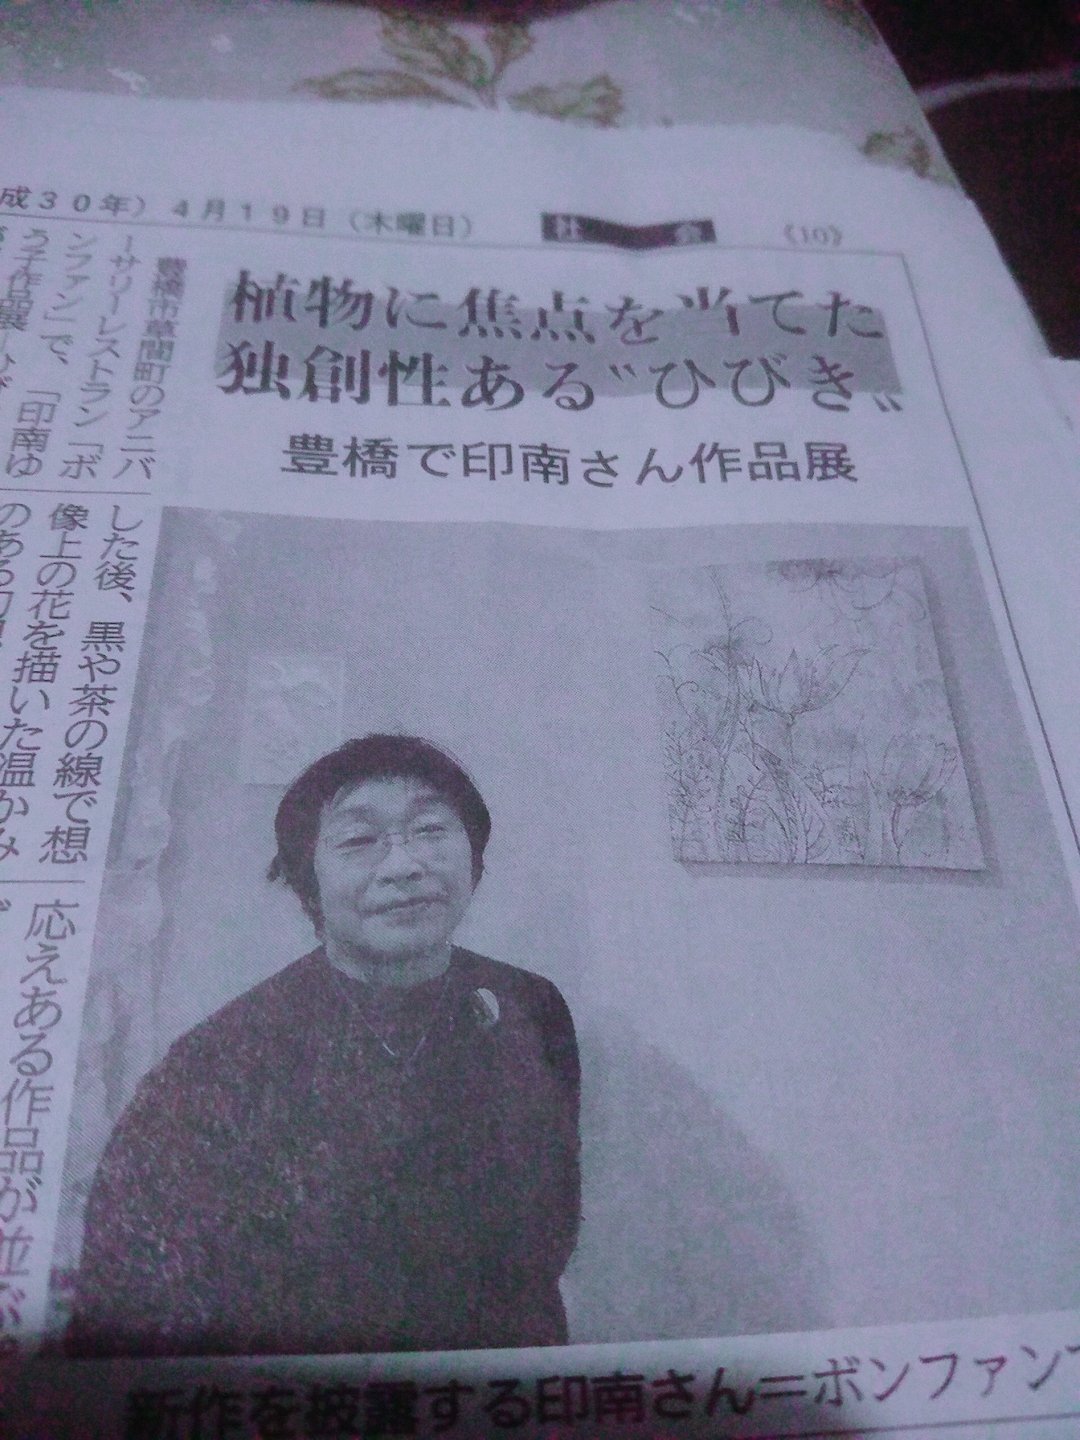 成30年）4月19日（木曜日）
社会
《10》
植物に焦点を当てた
独創性ある〝ひびき〟
豊橋で印南さん作品展
豊橋市草間町のアニバ
ーサリーレストラン「ボ
ンファン」で、「印南ゆ
う子作品展
した後、黒や茶の線で想
像上の花を描いた温かみ
のある幻想
応えある作品が並ぶ。
新作を披露する印南さん＝ボンファンで